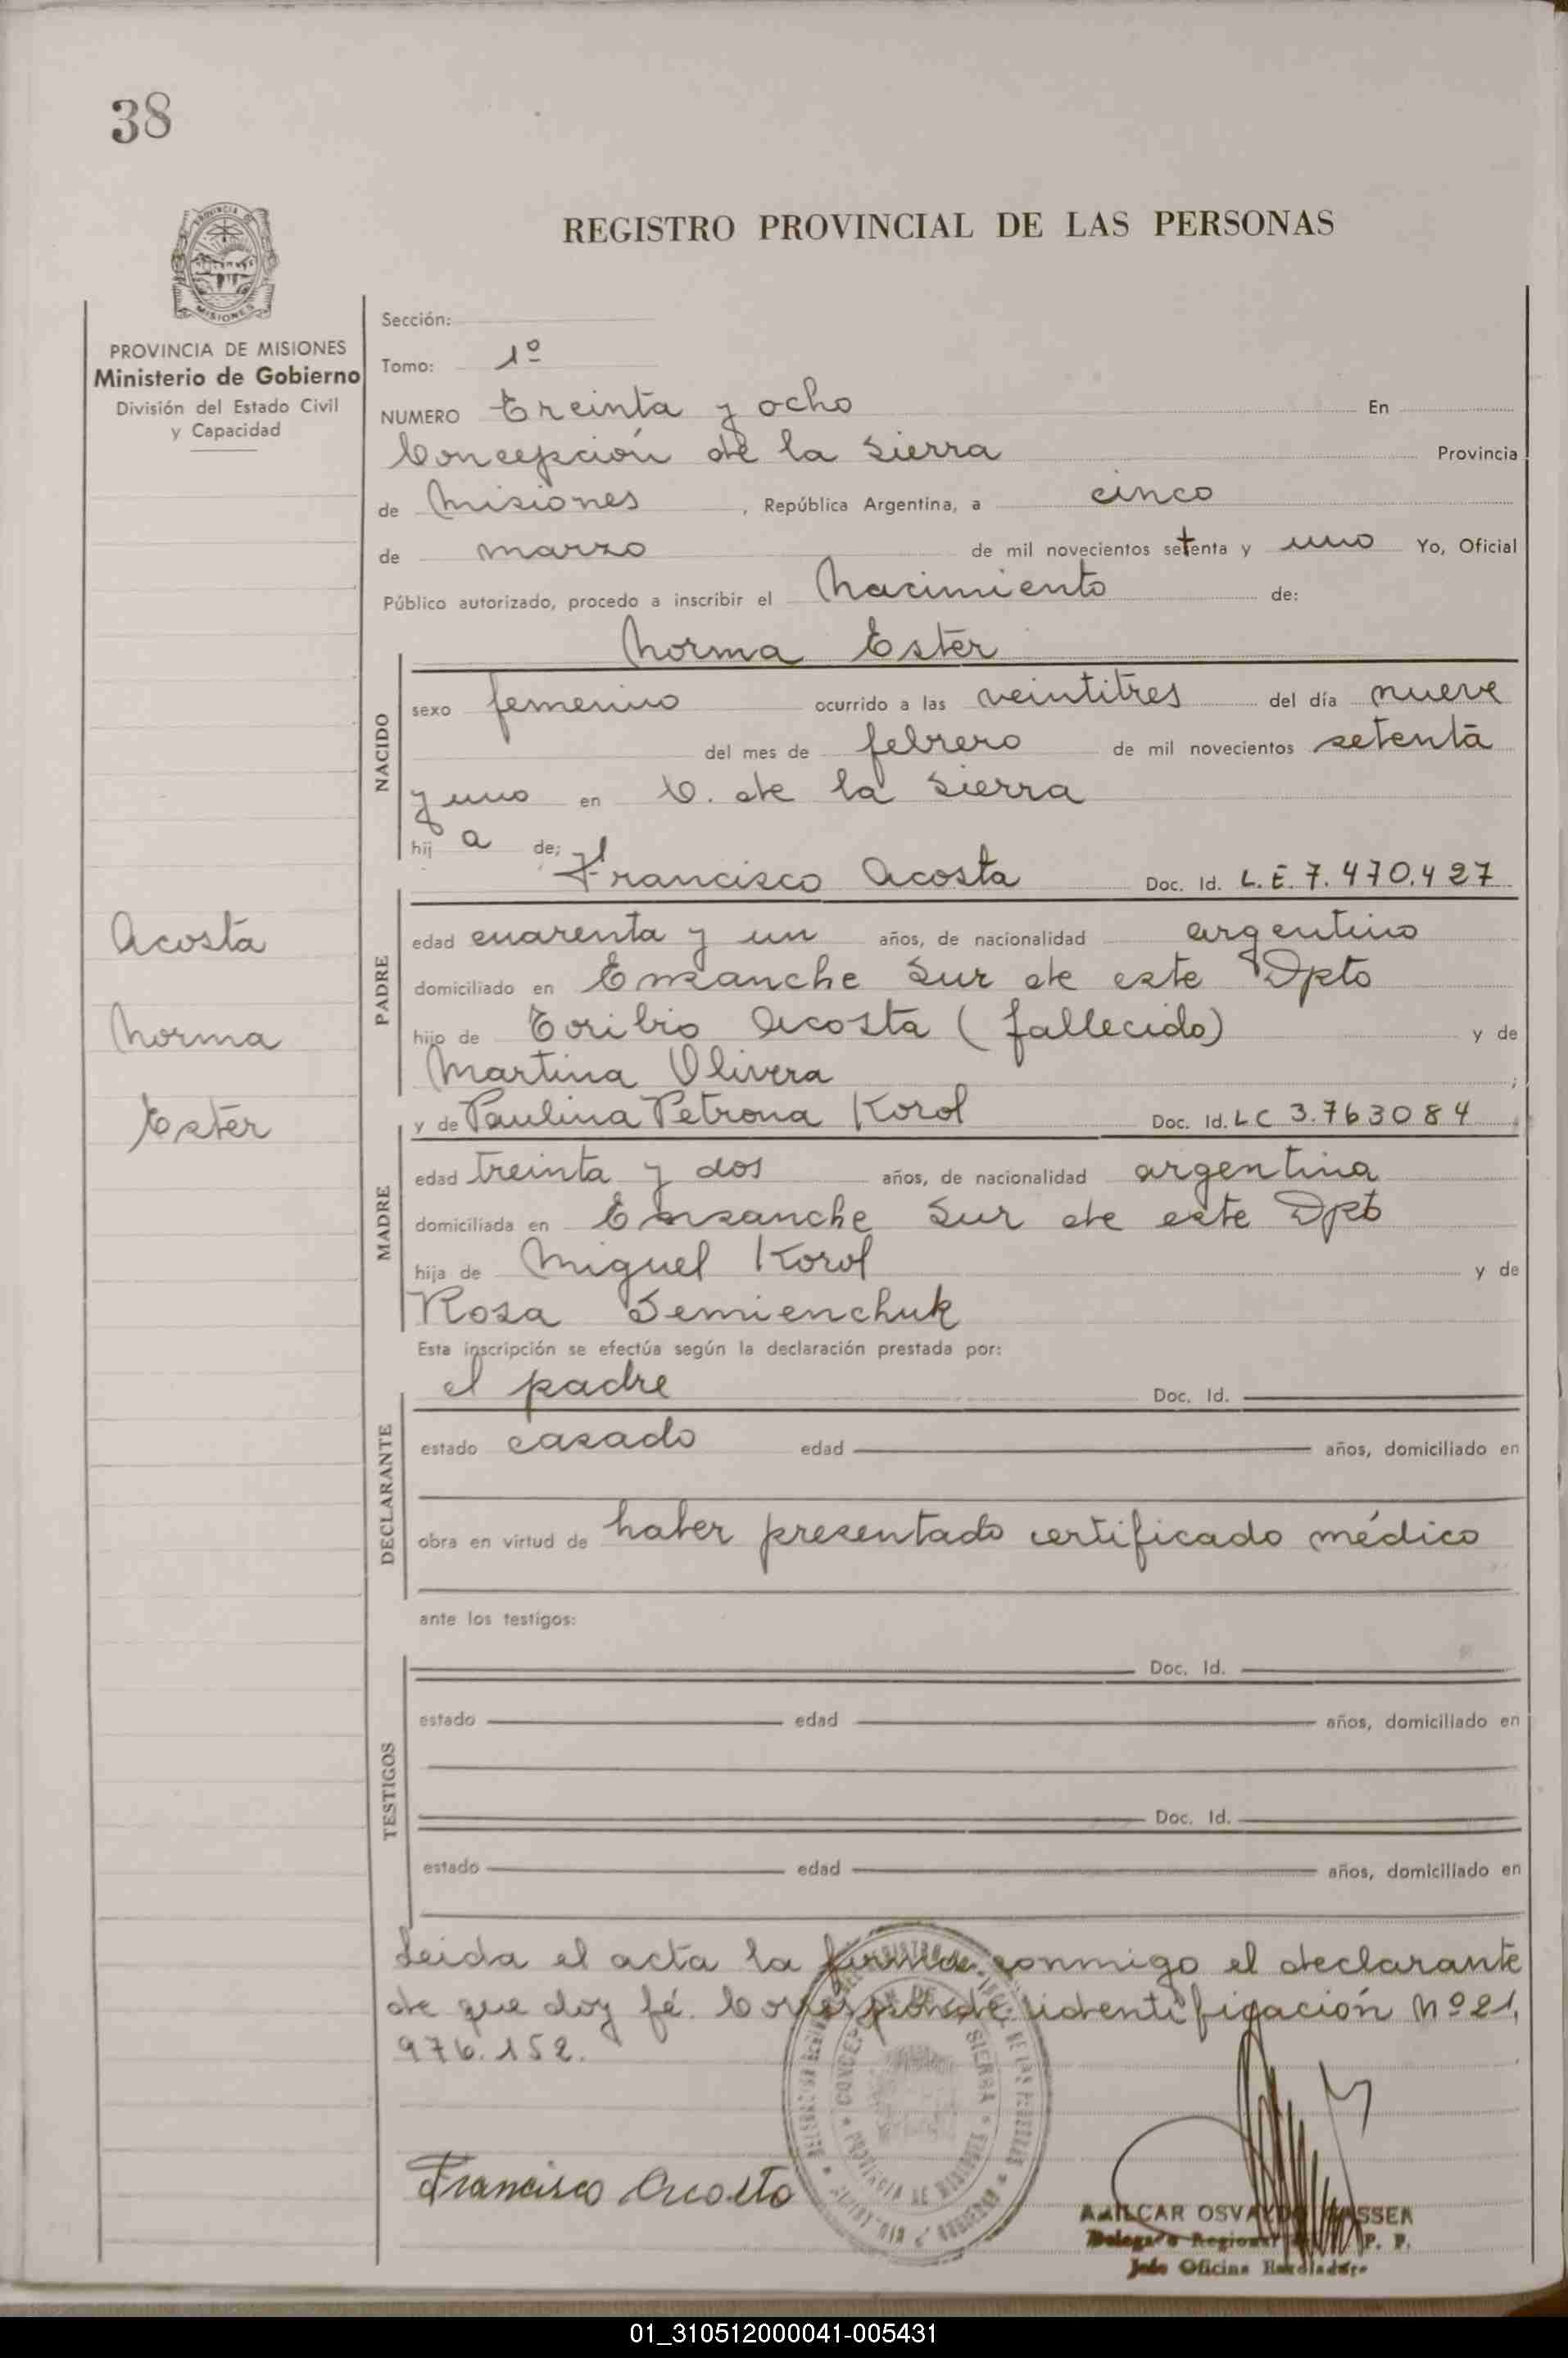 38
REGISTRO PROVINCIAL DE LAS PERSONAS
PROVINCIA DE MISIONES
Ministerio de Gobierno
División del Estado Civil
y Capacidad
Sección:
Tomo: 1º
NUMERO Treinta y ocho En
Concepción de la Sierra Provincia
de Misiones, República Argentina, a cinco
de marzo de mil novecientos setenta y uno Yo, Oficial
Público autorizado, procedo a inscribir el Nacimiento de:
Norma Ester
NACIDO
sexo femenino ocurrido a las veintitres del día nueve
del mes de febrero de mil novecientos setenta
y uno en C. de la Sierra
hij a de; Francisco Acosta Doc. Id. L.E. 7.470.427
Acosta
Norma
Ester
PADRE
edad cuarenta y un años, de nacionalidad argentino
domiciliado en Ensanche Sur de este Dpto
hijo de Toribio Acosta (fallecido) y de
Martina Olivera ;
y de Paulina Petrona Korol Doc. Id. LC 3.763084
MADRE
edad treinta y dos años, de nacionalidad argentina
domiciliada en Ensanche Sur de este Dpto
hija de Miguel Korol y de
Rosa Semienchuk
Esta inscripción se efectúa según la declaración prestada por:
el padre Doc. Id.
DECLARANTE
estado casado edad años, domiciliado en
obra en virtud de haber presentado certificado médico
ante los testigos:
TESTIGOS
Doc. Id.
estado edad años, domiciliado en
Doc. Id.
estado edad años, domiciliado en
Leida el acta la firma conmigo el declarante
de que doy fé. Corresponde identificación Nº 21.
976.152.
Francisco Acosta
CONCEPCION DE LA SIERRA
PROVINCIA DE MISIONES
AMILCAR OSVALDO
Jefe Oficina
01_310512000041-005431